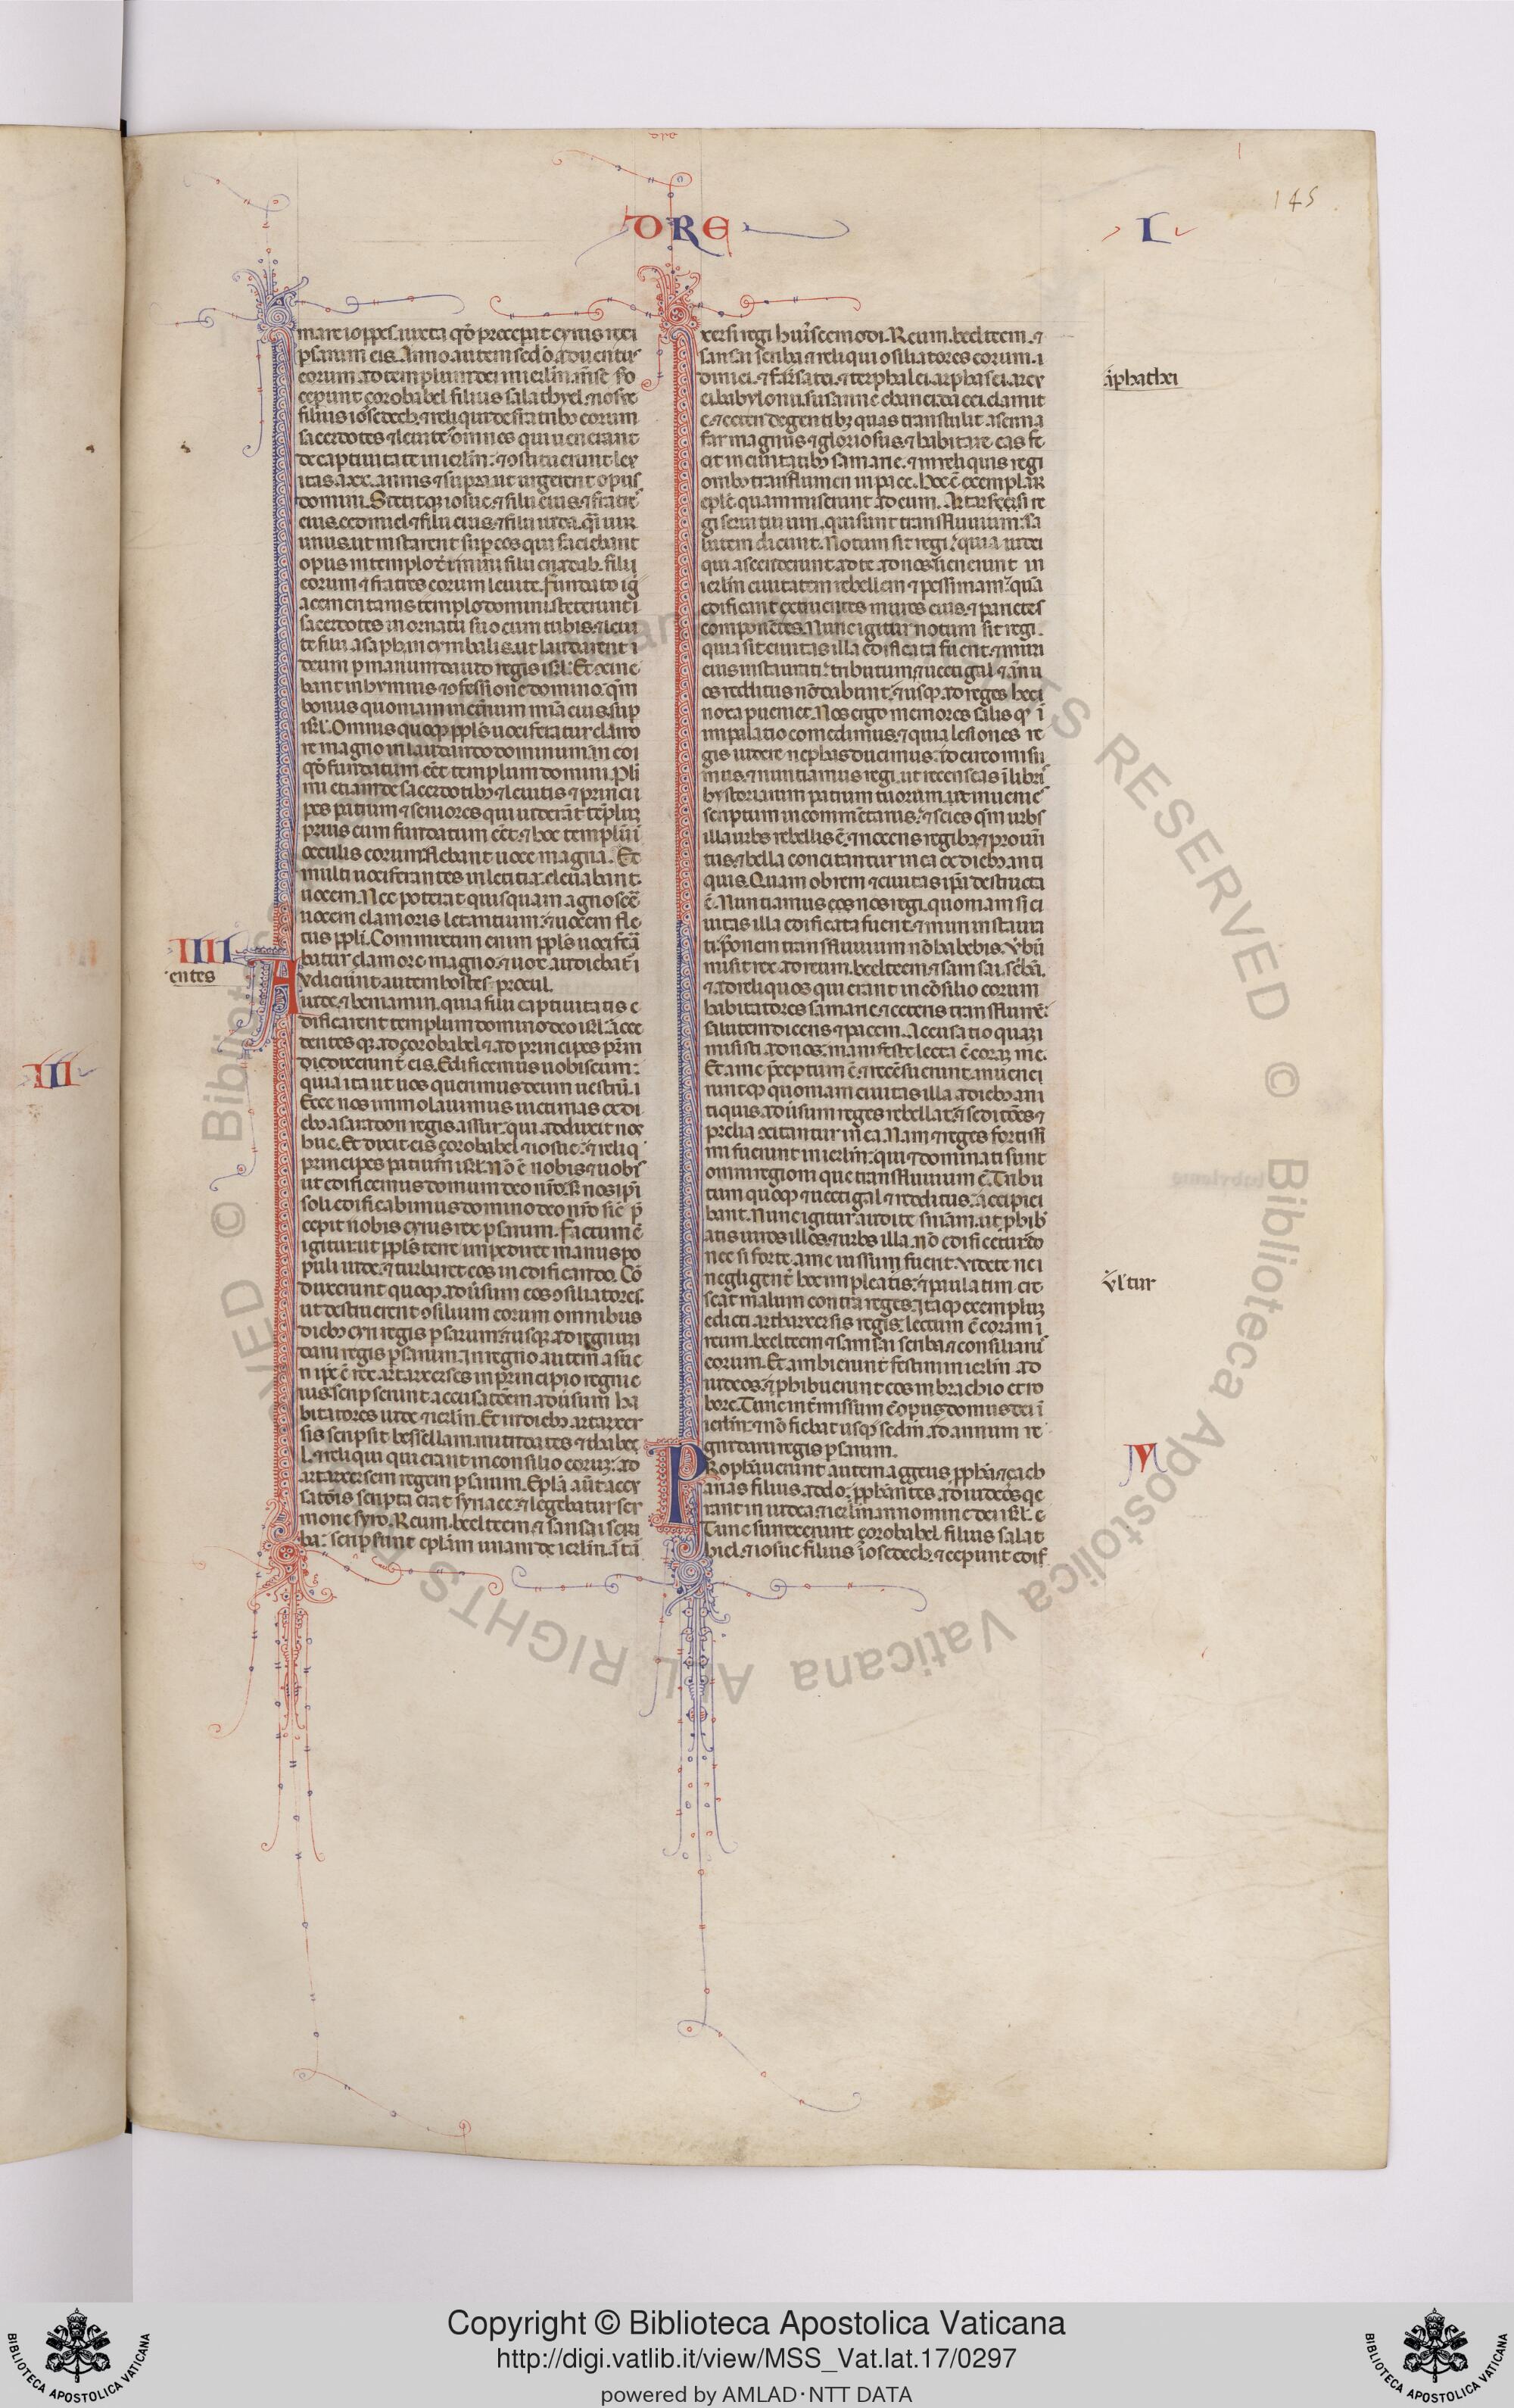 DRE
L
145
mare ioppes. iuxta qđ preceperat cyrus rex
persarum eis. Anno autem sedo. aduentus
eorum ad templum dei in ierlm. mse scdo
ceperunt çorobabel filius salathyel. 7 iosue
filius iosedech. 7 reliqui de fratribꝫ eorum
sacerdotes 7 leuite. 7 omnes qui uenerant
de captiuitate in ierlm. 7 ꝯstituerunt leu
itas. a. xx. annis 7 supra. ut urgerent opus
domini. Stetitqꝫ iosue. 7 filii eius. 7 fratres
eius. cedmiel 7 filii eius. 7 filii iuda. q̃i uir
unus. ut instarent sup eos qui faciebant
opus in templo dei. filii enadab. filii
eorum 7 fratres eorum leuite. Fundato ig̃
a cementariis templo domini. steterunt
sacerdotes in ornatu suo cum tubis. 7 leui
te filii asaph in cymbalis. ut laudarent
deum per manum dauid regis isrl. Et ꝯcine
bant in hymnis 7 ꝯfessione domino. qm
bonus quoniam in eternum mia eius. sup
isrl. Omnis quoqꝫ ppls uociferatur clamo
re magno in laudando dominum. in eo
qđ fundatum eet templum domini. Pli
mi etiam de sacerdotibꝫ 7 leuitis 7 princi
pes patrum 7 seniores qui uiderant templum
prius cum fundatum eet. 7 hoc templum
occulis eorum. flebant uoce magna. Et
multi uociferantes in letitia. eleuabant
uocem. Nec poterat quisquam agnosce
uocem clamoris letantium. 7 uocem fle
tus ppli. Commixtim enim ppls uocifera
IIII
batur clamore magno. 7 uox audiebatur
entes
Audierunt autem hostes procul.
iude. 7 beniamin. quia filii captiuitatis e
dificarent templum domino deo isrl. acce
dentes qꝫ ad çorobabel 7 ad principes patrum
dixerunt eis. Edificemus uobiscum.
quia ita ut uos querimus deum uestrum.
Ecce nos immolauimus uictimas ex di
ebꝫ asaraddon regis assur. qui adduxit nos
huc. Et dixit eis çorobabel 7 iosue. 7 reliq
principes patrum isrl. Nō ē nobis 7 uobis
ut edificemus domum deo nro. s; nos ipi
soli edificabimus domino deo nro. sic pre
cepit nobis cyrus rex persarum. Factum ē
igitur. ut ppls terre impediret manus po
puli iude. 7 turbaret eos in edificando. Cō
duxerunt quoqꝫ aduersum eos ꝯsiliatores.
ut destruerent ꝯsilium eorum omnibus
diebꝫ cyri regis persarum. 7 usqꝫ ad regnum
darii regis persarum. In regno autem asue
ri ipse ē rex artaxerses in principio regni e
ius. scripserunt accusatōem aduersum ha
bitatores iude 7 ierlm. Et in diebꝫ artaxer
sis scripsit besellam. mitridates 7 thabee
l. 7 reliqui qui erant in consilio eorum. ad
artaxersem regem persarum. Epla aut accu
satōis scripta erat syriace. 7 legebatur ser
mone syro. Reum. beelteem. 7 sansai scri
ba. scripserunt eplam unam de ierlm. arta
xersi regi huiuscemodi. Reum. beelteem. 7
sansai scriba. 7 reliqui ꝯsiliatores eorum.
dinei. 7 farsatei. 7 terphalei. arphasei. ercu
aphathei
ei babylonii. susannechanei. dacei. elamit
e. 7 ceteri de gentibꝫ quas transtulit asenna
far magnus 7 gloriosus. 7 habitare eas fe
cit in ciuitatibꝫ samarie. 7 in reliquis regi
onibꝫ trans flumen in pace. Hoc ē exemplar
eple. quam miserunt ad eum. Artarsersi re
gi serui tui uiri. qui sunt trans fluuium. sa
lutem dicunt. Notum sit regi. quia iudei
qui ascenderunt ad te. ad nos uenerunt in
ierlm ciuitatem rebellem 7 pessimam. quā
edificant extruentes muros eius. 7 parietes
componētes. Nunc igitur notum sit regi.
quia si ciuitas illa edificata fuerit. 7 muri
eius instaurati. tributum. 7 uectigal. 7 annu
os redditus nō dabunt. 7 usqꝫ ad reges hec
noxa perueniet. Nos ergo memores salis q̃
in palatio comedimus. 7 quia lesiones re
gis uidere nephas ducimus. idcirco misi
mus. 7 nuntiamus regi. ut recenseas in libris
hystoriarum patrum tuorum. ut inuenies
scriptum in commētariis. 7 scies qm urbs
illa urbs rebellis ē. 7 nocens regibꝫ. 7 prouin
tiis. 7 bella concitantur in ea ex diebꝫ anti
quis. Quam ob rem 7 ciuitas ipa destructa
ē. Nuntiamus eos nos regi. quoniam si ci
uitas illa edificata fuerit. 7 muri instaura
ti. possessionem trans fluuium nō habebis. Vbū
misit rex ad reum. beelteem. 7 samsai. scbā.
7 ad reliquos qui erant in cōsilio eorum
habitatores samarie. 7 ceteris trans fluuiū.
salutem dicens 7 pacem. Accusatio quam
misisti ad nos. manifeste lecta ē coram me.
Et a me preceptum ē. 7 recēsuerunt. inuene
runtqꝫ quoniam ciuitas illa a diebꝫ an
tiquis. aduersum reges rebellat. 7 seditōes. 7
prelia ꝯcitantur in ea. Nam 7 reges fortissi
mi fuerunt in ierlm. qui 7 dominati sunt
omni regioni que trans fluuium ē. Tribu
tum quoqꝫ 7 uectigal. 7 redditus. accipie
bant. Nunc igitur audite sniam. ut phib
eatis uiros illos. 7 urbs illa. nō edificetur. do
nec si forte a me iussum fuerit. Videte ne
negligenter hoc impleatis. 7 paulatim cre
ult̃ur
scat malum contra reges. Itaqꝫ exemplum
edicti artharxersis regis. lectum ē coram
reum. beelteem 7 samsai scriba. 7 consiliarii
eorum. Et abierunt festini in ierlm ad
iudeos. 7 phibuerunt eos in brachio et ro
bore. Tunc intermissum ē opus domus dei
ierlm. 7 nō fiebat usqꝫ sedm. ad annum re
gni darii regis persarum.
M
Prophauerunt autem aggeus ppha. 7 çach
arias filius addo. pphantes. ad iudeos q̃ e
rant in iudea. 7 ierlm. in nomine dei isrl. e
Tunc surrexerunt çorobabel filius salat
hiel. 7 iosue filius iosedech. 7 ceperunt edif
III
Copyright © Biblioteca Apostolica Vaticana
http://digi.vatlib.it/view/MSS_Vat.lat.17/0297
powered by AMLAD·NTT DATA